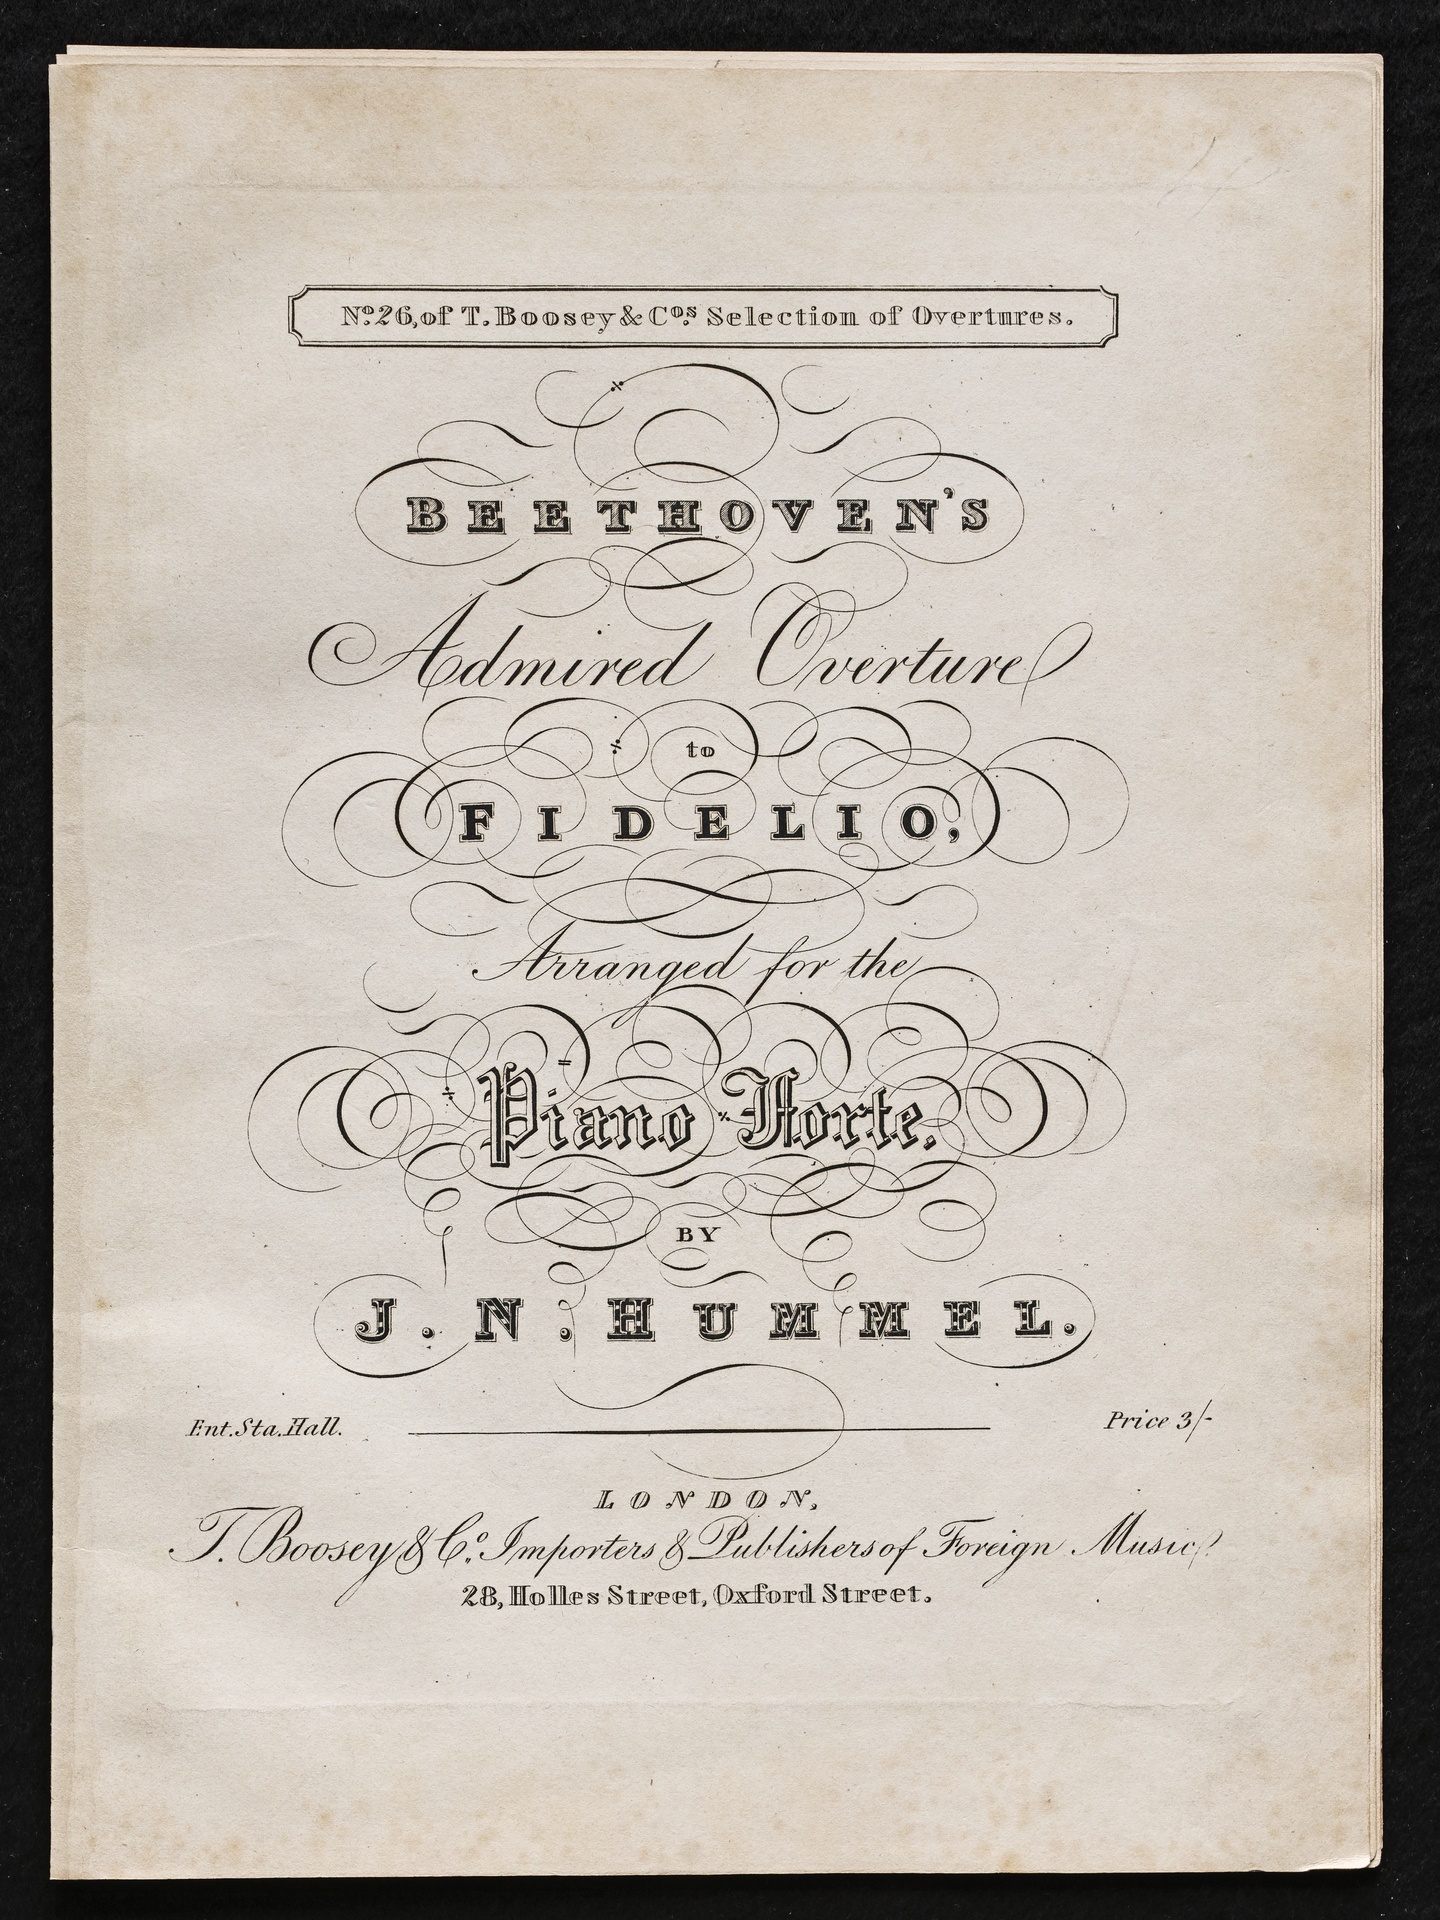 No. 26, of T. Boosey & Cos. Selection of Overtures.
BEETHOVEN'S
Admired Overture
to
FIDELIO,
Arranged for the
Piano Forte.
BY
J. N. HUMMEL.
Ent. Sta. Hall.
Price 3/-
LONDON,
T. Boosey & Co. Importers & Publishers of Foreign Music.
28, Holles Street, Oxford Street.